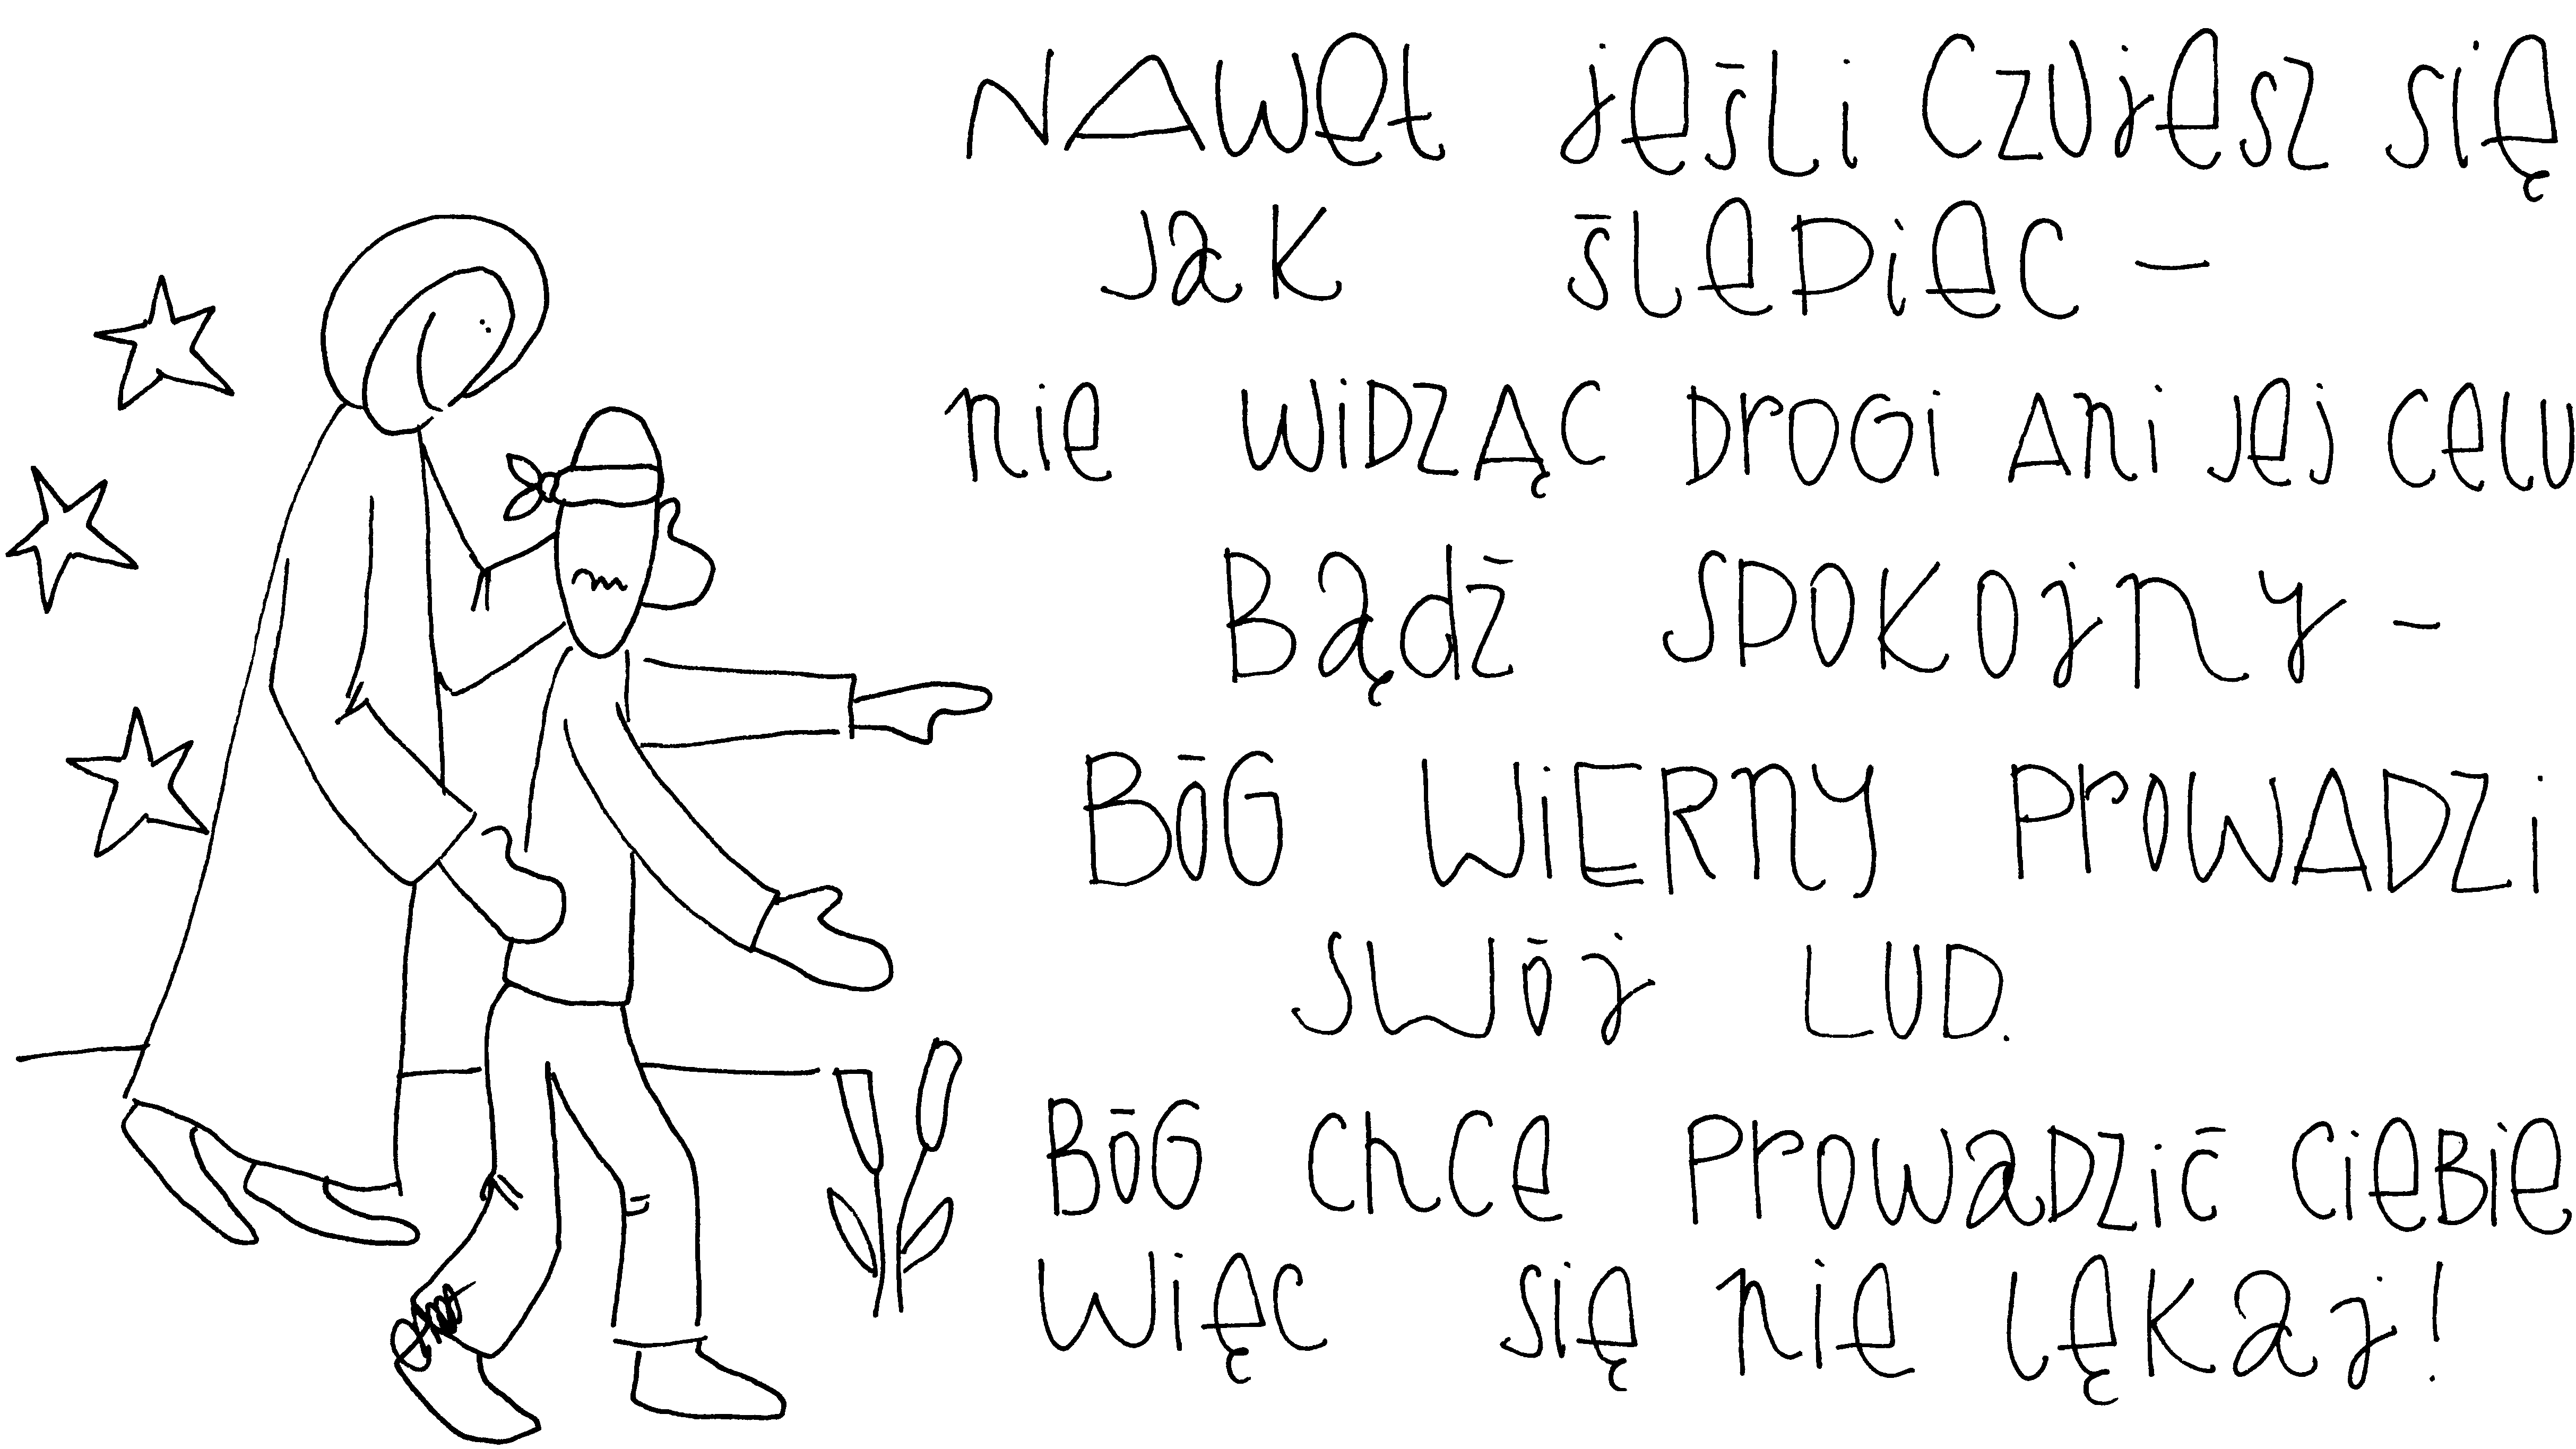 NAWet jeśli czujesz się
jak ślepiec –
nie widząc drogi ani jej celu
Bądź spokojny –
Bóg wierny prowadzi
swój lud.
Bóg chce prowadzić ciebie
więc się nie lękaj!